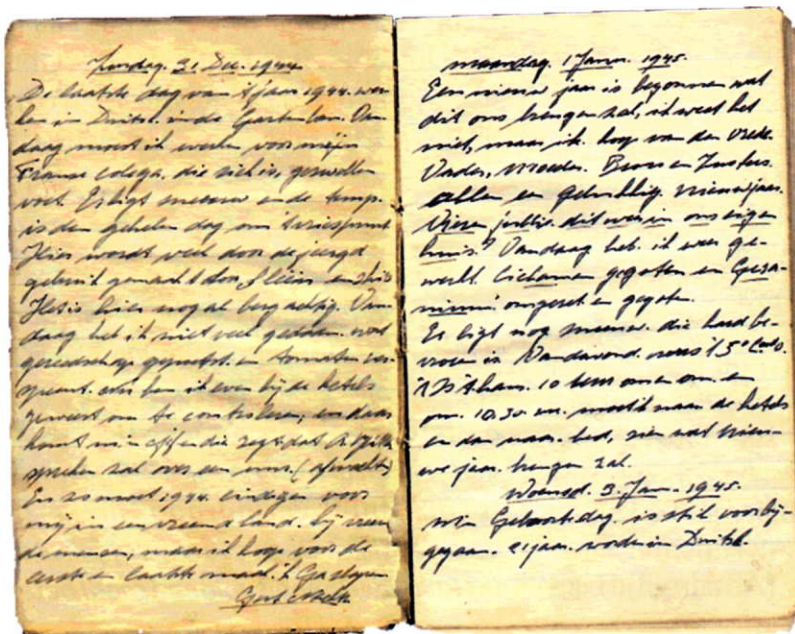 Zondag. 31 Dec. 1944
De laatste dag van 't jaar 1944. wer-
ken in Duitsl. in de Gartenbau. Van-
daag moest ik werken voor mijn
Franse colega, die ziek is, gezwollen
voet. Er ligt sneeuw en de temp.
is den geheelen dag om 't vriespunt
Hier wordt veel door de jeugd
gebruik gemaakt door sleeën en skiës
Het is hier nogal bergachtig. Van-
daag heb ik niet veel gedaan. wat
gereedschap gepoetst en tomaten ver-
speent. ook ben ik even bij de ketels
geweest om te controleren, en daar
komt mijn die zegt dat
spreken zal over een uur. (afwachten)
En zo moet 1944. eindigen voor
mij in een vreemd land. bij vreem-
de mensen, maar ik hoop voor de
eerste en laatste maal. 'k Ga slapen
Gert
maandag. 1 Janu. 1945.
Een nieuw jaar is begonnen wat
dit ons brengen zal, ik weet het
niet, maar ik. hoop van den vrede.
Vader, Moeder. Broers en Zusters.
allen een Gelukkig. Nieuwjaar.
Vieren jullie. dit weer in ons eigen
huis? Vandaag heb. ik weer ge-
werkt. Ciclamen gegoten en Gera-
niums omgezet en gegoten.
Er ligt nog sneeuw. die hard be-
vroren is Vandavond. was 't 5°
't Is thans. 10 uur en om
om. 10.30 uur. moet ik naar de ketels
en dan naar. bed, zien wat Nieu-
we jaar. brengen zal.
Woensd. 3. Jan. 1945.
Mijn Geboortedag. is stil voorbij-
gegaan. 21 jaar. worden in Duitsl.